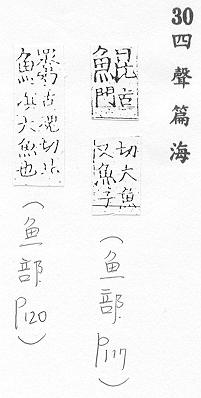 30 四聲篇海
古門
切大魚
又魚子
(魚部 P117)
古魂切北
大魚也
(魚部 P120)